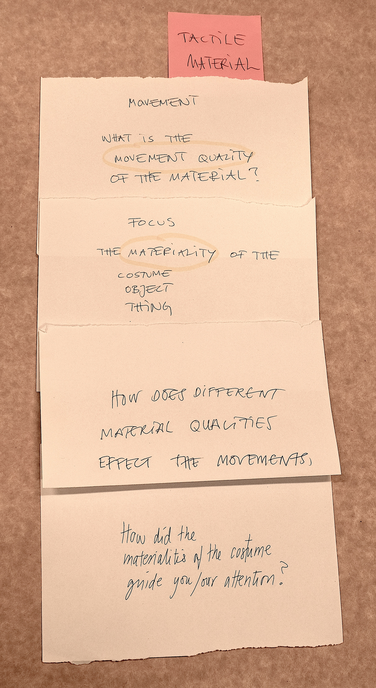 TACTILE
MATERIAL
MOVEMENT
WHAT IS THE
MOVEMENT QUALITY
OF THE MATERIAL?
FOCUS
THE MATERIALITY OF THE
COSTUME
OBJECT
THING
HOW DOES DIFFERENT
MATERIAL QUALITIES
EFFECT THE MOVEMENTS,
How did the
materialitis of the costume
guide you/our attention?